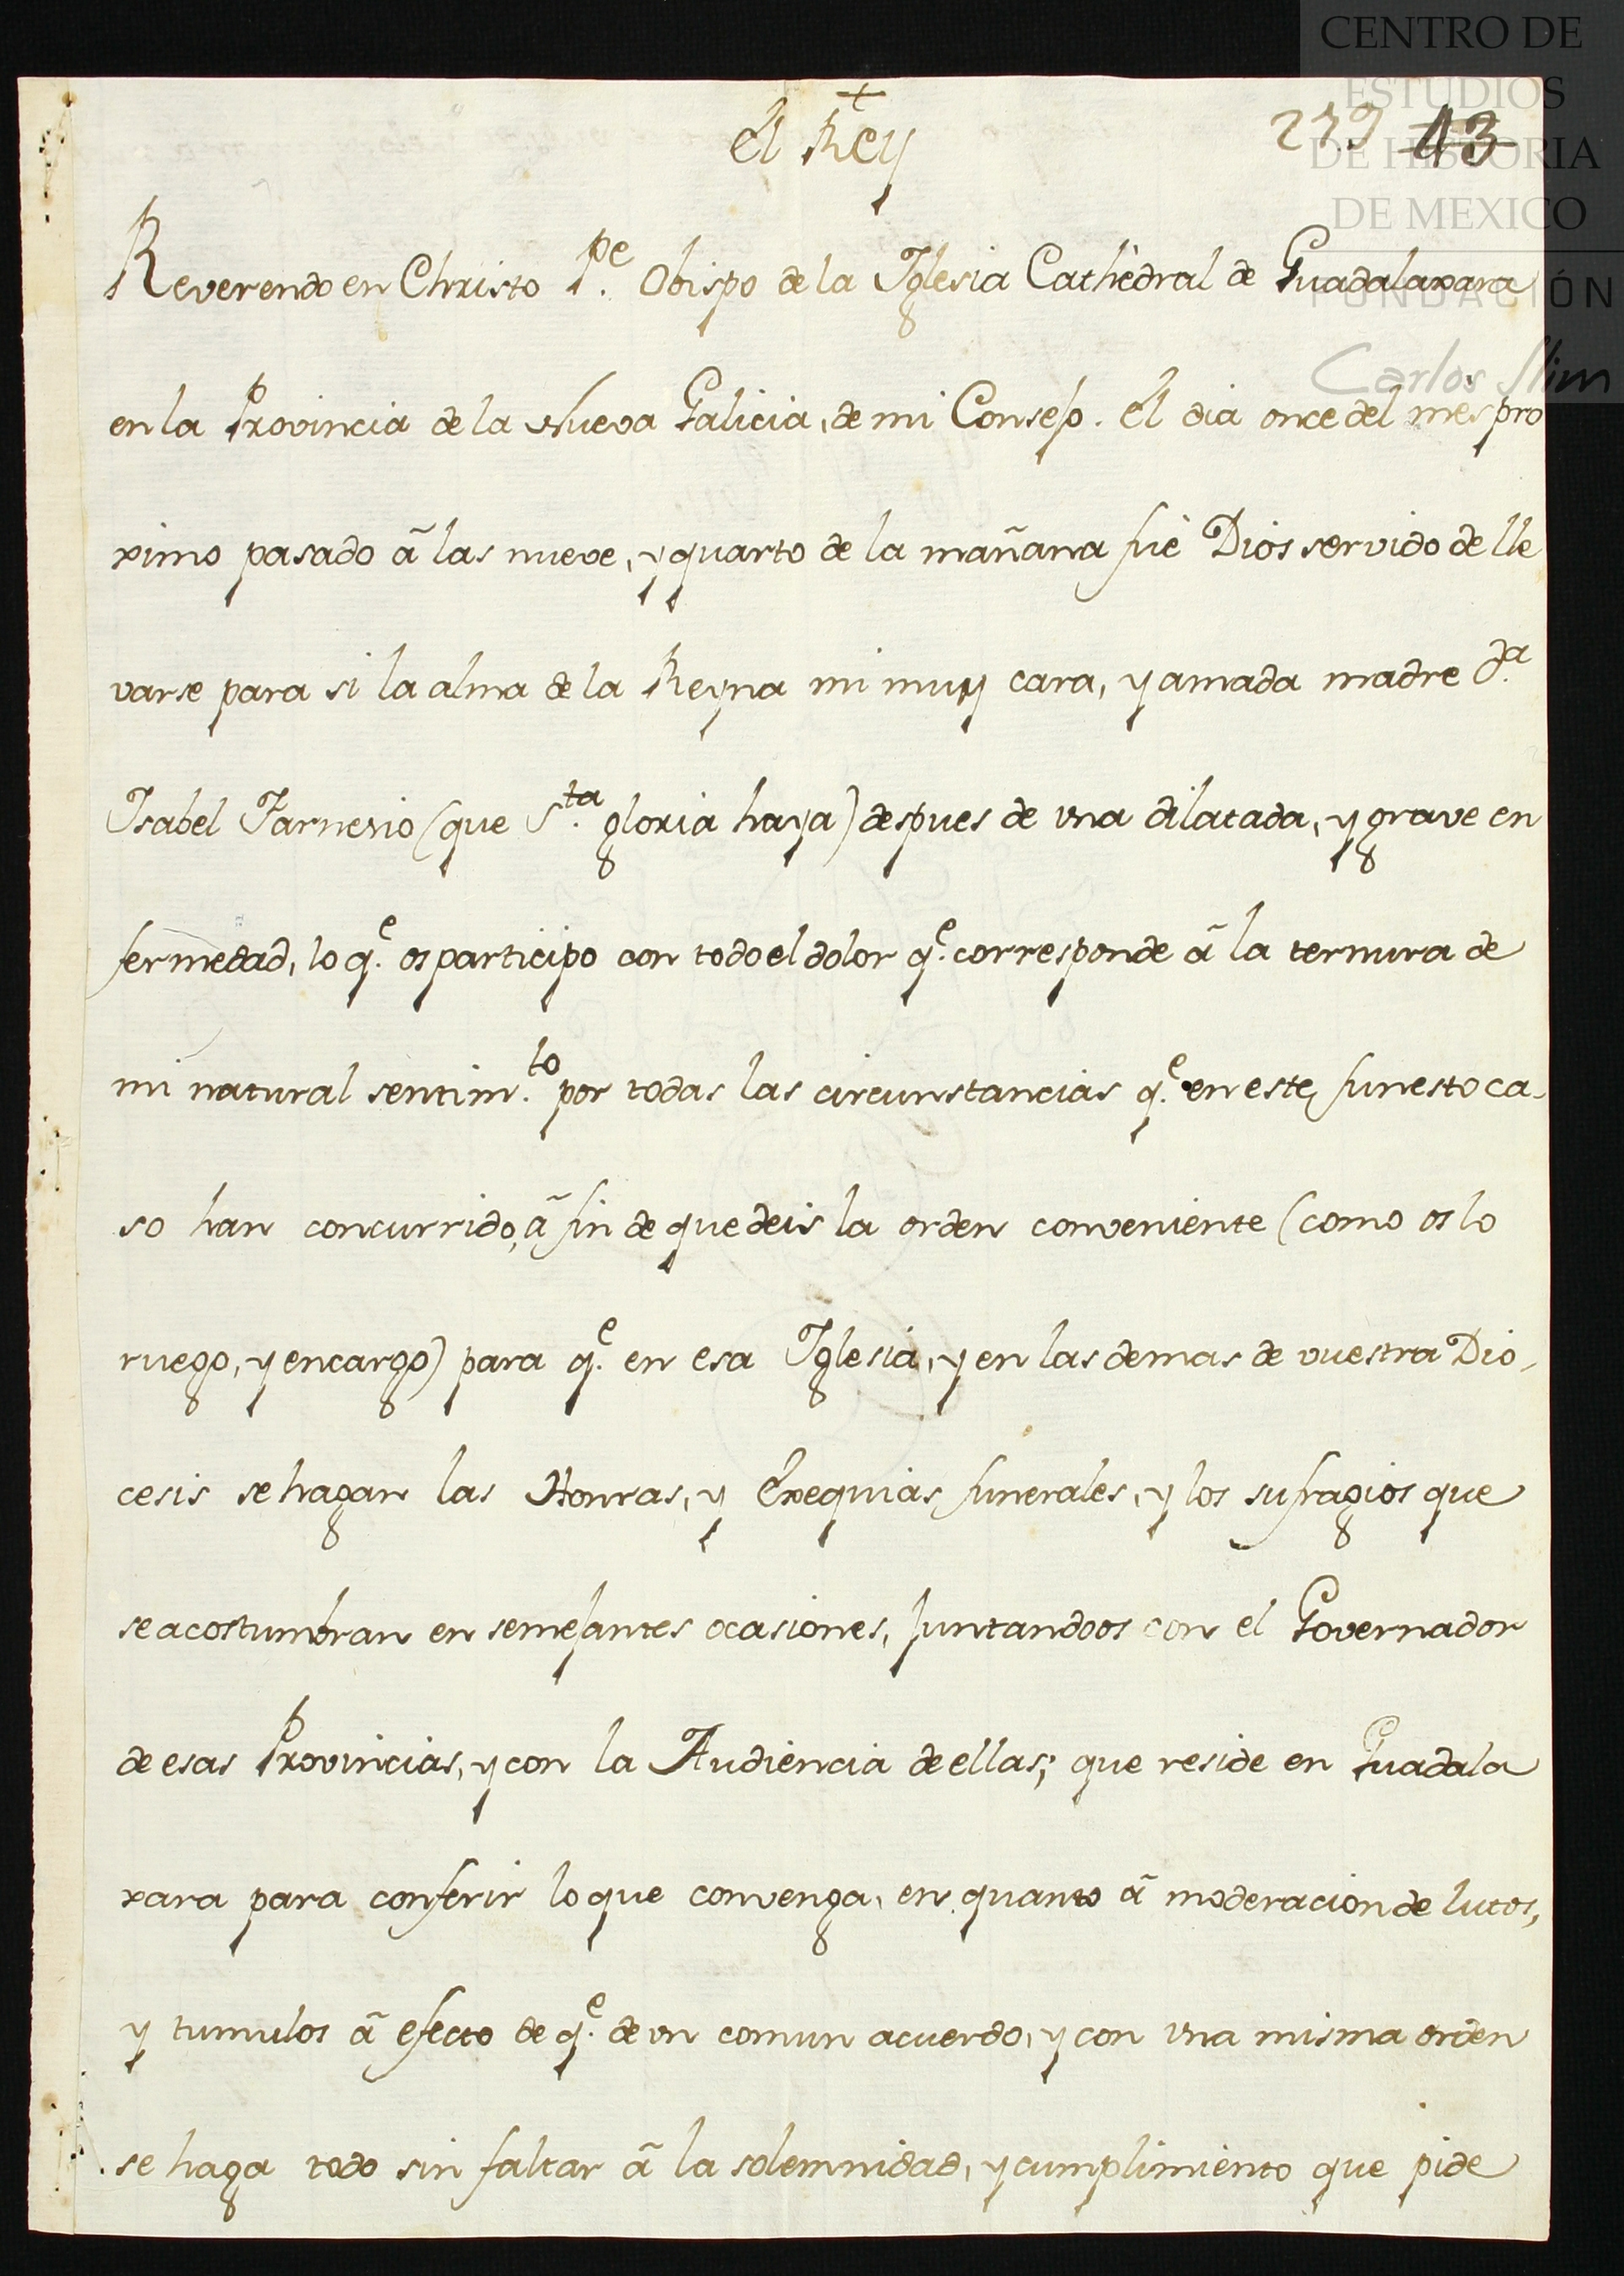 CENTRO DE
ESTUDIOS
DE HISTORIA
DE MEXICO
FUNDACIÓN
Carlos Slim
+
el Rey
239 43
Reverendo en Christo Pe. Obispo de la Iglesia Cathedral de Guadalaxara
en la Provincia de la Nueva Galicia, de mi Consejo. El dia once del mes pro
ximo pasado à las nueve, y quarto de la mañana fuè Dios servido de lle
varse para si la alma de la Reyna mi muy cara, y amada madre Da.
Isabel Farnesio (que Sta. gloria haya) despues de una dilatada, y grave en
fermedad, lo qe. os participo con todo el dolor qe. corresponde à la ternura de
mi natural sentimto. por todas las circunstancias qe. en este funesto ca-
so han concurrido, à fin de que deis la orden conveniente (como os lo
ruego, y encargo) para qe. en esa Iglesia, y en las demas de vuestra Dio-
cesis se hagan las Honras, y Exequias funerales, y los sufragios que
se acostumbran en semejantes ocasiones, juntandoos con el Governador
de esas Provincias, y con la Audiencia de ellas, que reside en Guadala
xara para conferir lo que convenga, en quanto à moderacion de lutos,
y tumulos à efecto de qe. de un comun acuerdo, y con una misma orden
se haga todo sin faltar à la solemnidad, y cumplimiento que pide